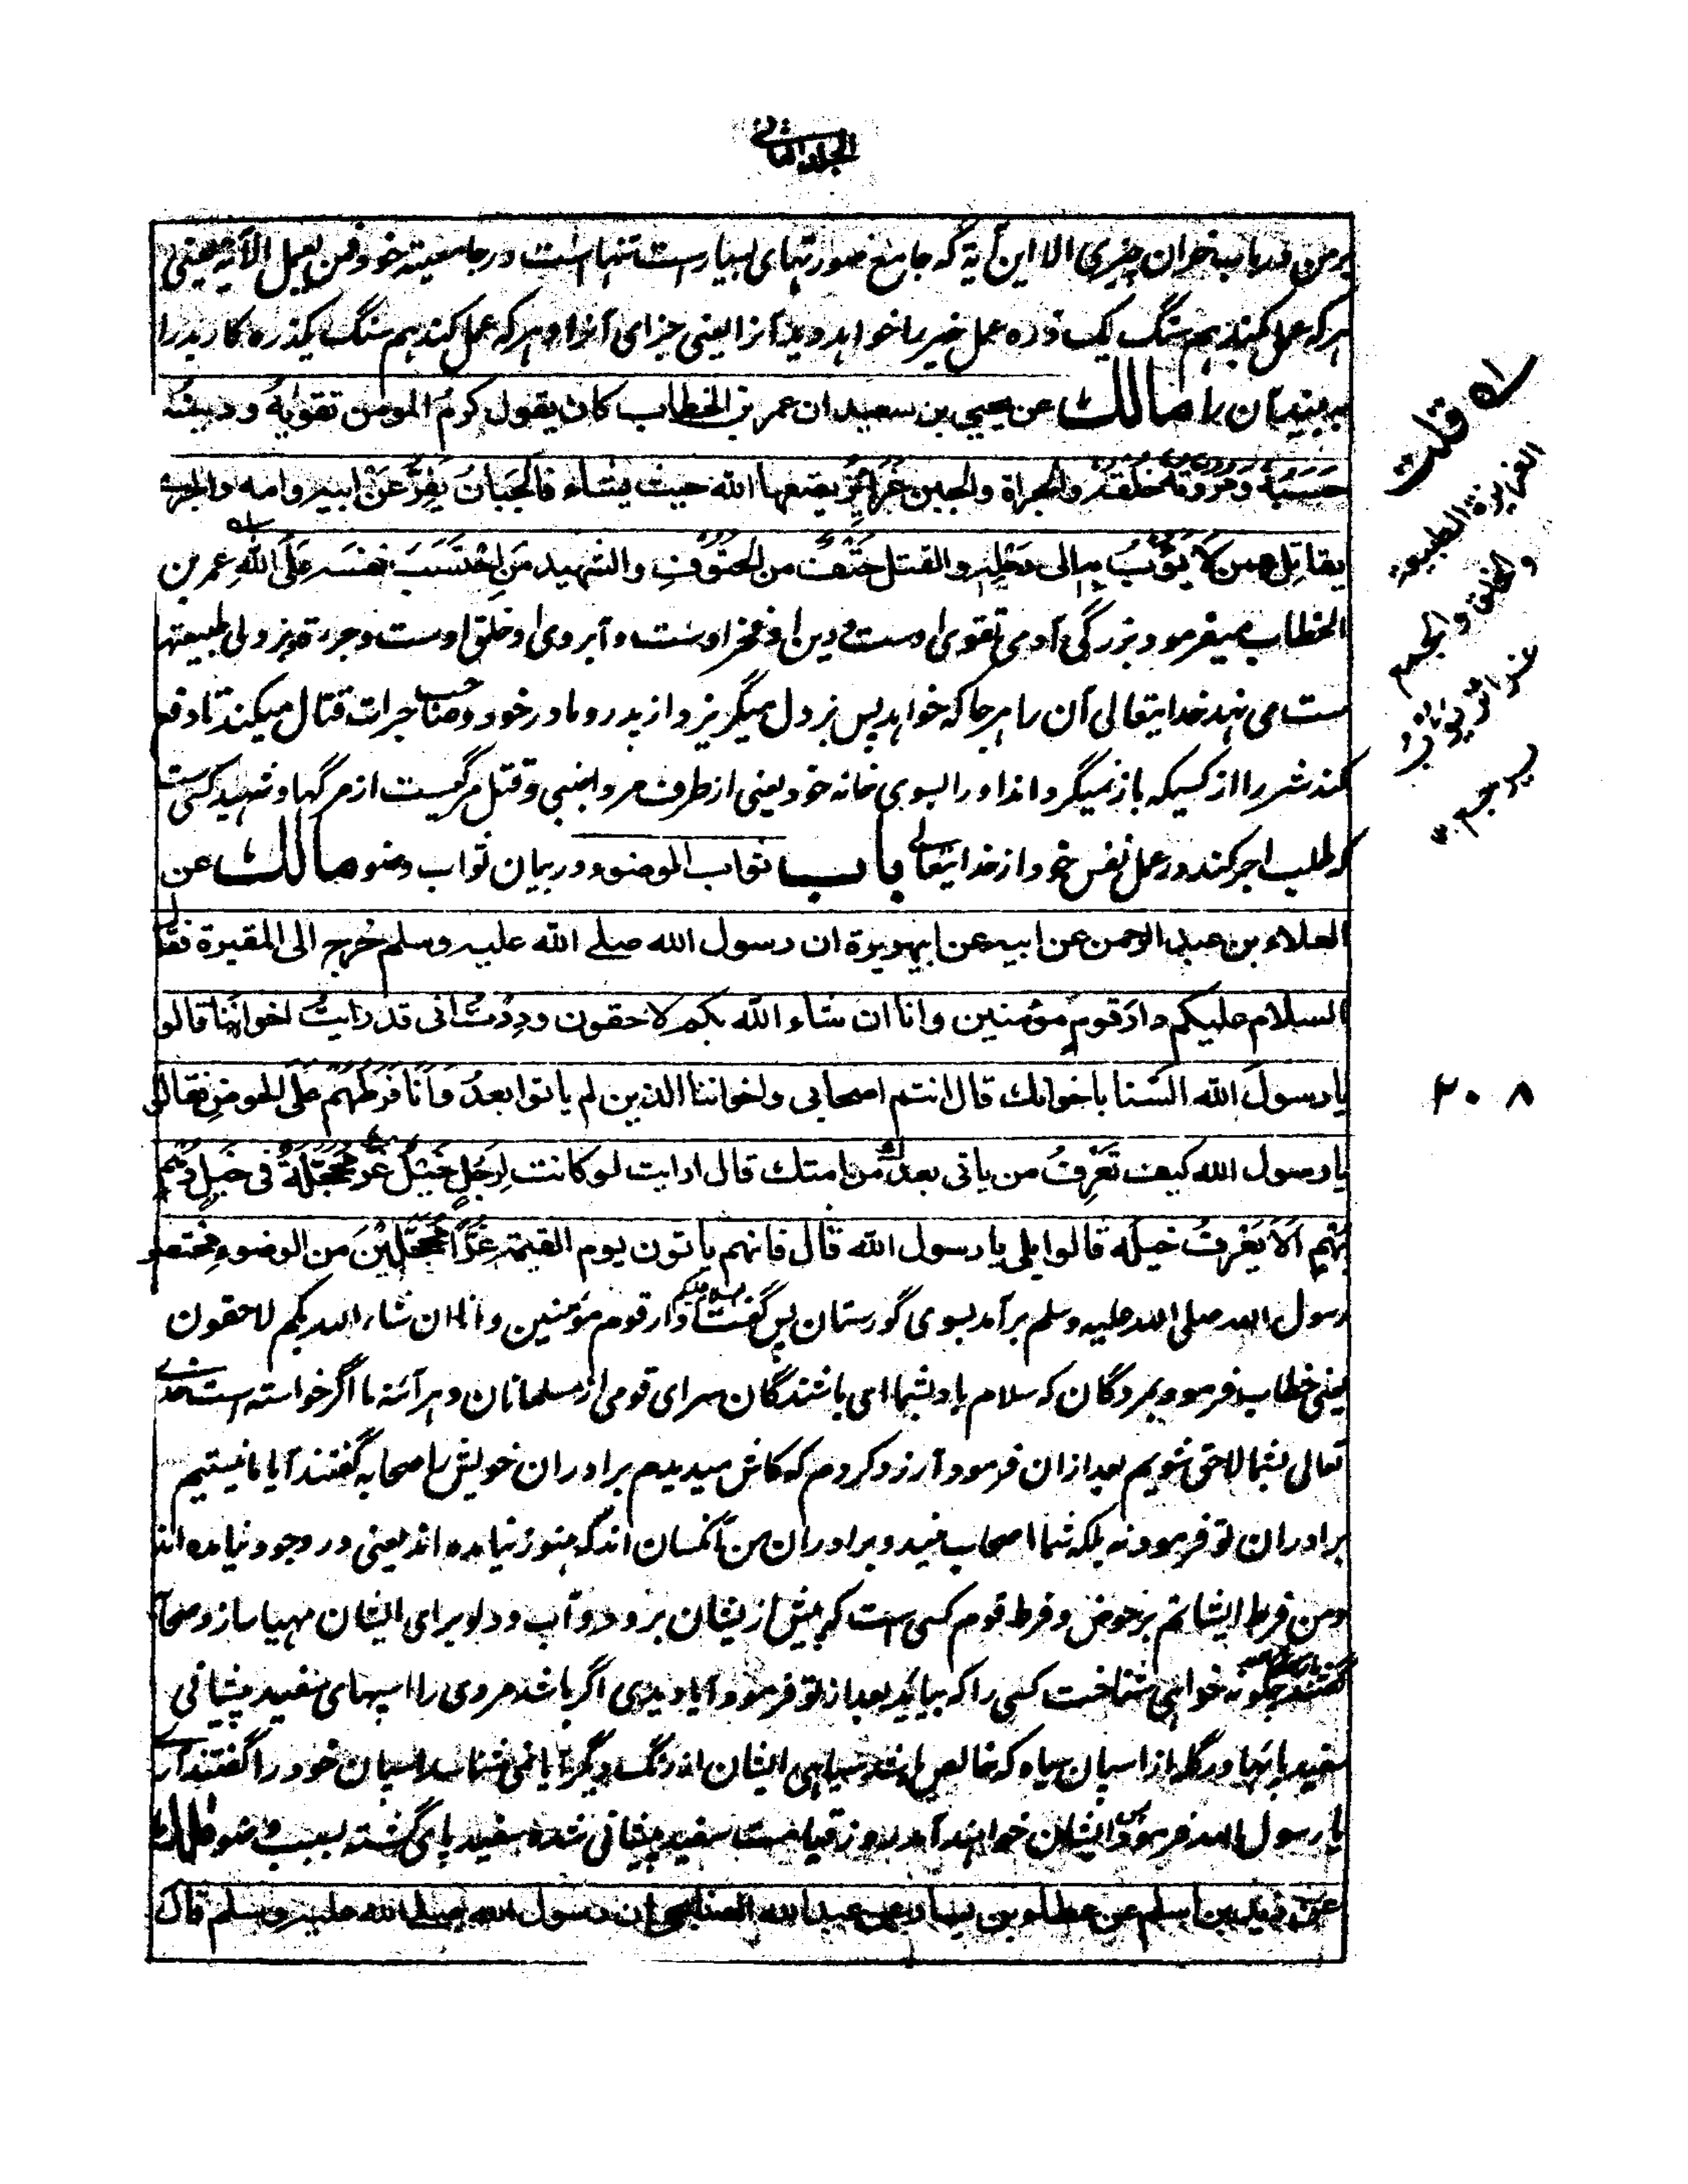 الجلد الثانی
بر من در باب خران چیزی الا این آیة که جامع صورتهای بسیارست تنها است در جامعیته خود فمن یعمل الآیة یعنی
هر که عمل کند هم سنگ یک ذره عمل خیر را خواهد دید آنرا یعنی جزای آنرا و هر که عمل کند هم سنگ یکذره کار بد را
به بیند آن را مالك عن يحيي بن سعيد ان عمر بن الخطاب كان يقول كرمُ المومن تقواه ودينُه
حَسَبُهُ ومُرُوَّتُهُ خُلُقُه والجراة والجبن غَرَائِزُ يضعها الله حيث يشاء فالجَبَانُ يَفِرُّ عَنْ ابيه وامه والجرئ
يقاتِل عمن لا يَؤُبُ به الى رَحْلِه والقتل حَتْفٌ من الحُتُوْفِ والشهيد مَنِ احْتَسَبَ نفسَه عَلَى اللهِ عمر بن
الخطاب میفرمود بزرگی آدمی تقوی اوست و دین او فخر اوست و آبروی او خلق اوست و جرءة و بزدلی طبیعتها
ست می نهد خدایتعالی آن را هر جا که خواهد پس بزدل میگریزد از پدر و مادر خود و صاحب جرات قتال میکند تا دفع
کند شر را از کسیکه باز نمیگرداند او را بسوی خانه خود یعنی از طرف مرد اجنبی و قتل مرگیست از مرگها و شهید کسی ست
که طلب اجر کند در عمل نفس خود از خدایتعالی باب ثواب الوضوء در بیان ثواب وضو مالك عن
العلاء بن عبد الرحمن عن ابيه عن ابيهريرة ان رسول الله صلے الله عليه وسلم خرج الى المقبرة فقال
السلام عليكم دارَ قومٍ مؤمنين وانا ان شاء الله بكم لاحقون ودِدْتُ انى قد رايتُ اخواننا قالوا
يا رسولَ الله السْنا باخوانك قال انتم اصحابى واخواننا الذين لم ياتوا بعدُ وَانَا فَرَطُهُم عَلَى الحوض فقالوا
يا رسول الله كيف تَعْرِفُ من ياتى بعدك من امتك قال ارايت لو كانت لِرَجُلٍ خَيْلٌ غُرٌّ مُحَجَّلَةٌ فى خَيلٍ دُهْمٍ
بُهْمٍ اَلَا يَعْرِفُ خيلَه قالوا بلى يا رسول الله قال فانهم ياتون يوم القيمة غُرًّا مُحَجَّلِيْنَ من الوضوء
رسول الله صلی الله علیه وسلم برآمد بسوی گورستان پس گفت سلام علیکم دار قوم مؤمنین و انا ان شاء الله بکم لاحقون
یعنی خطاب فرمود بمردگان که سلام باد بشما ای باشندگان سرای قومی از مسلمانان و هر آئنه ما اگر خواسته است خدای
تعالی بشما لاحق شویم بعد ازان فرمود آرزو کردم که کاش میدیدم برادران خویش را صحابه گفتند آیا ما نیستیم
برادران تو فرمود نه بلکه شما اصحاب منید و برادران من آنکسان اند که هنوز نیامده اند یعنی در وجود نیامده اند
و من فرط ایشانم بر حوض و فرط قوم کسی ست که پیش ازیشان برود و آب و دلو برای ایشان مهیا سازد صحابه
گفتند چگونه خواهی شناخت کسی را که بیاید بعد از تو فرمود آیا دیدی اگر باشد مردی را اسپهای سفید پیشانی
سفید پایها در گله از اسپان سیاه که خالص باشد سیاهی ایشان از رنگ دیگر آیا نمی شناسد اسپان خود را گفتند آری
یا رسول الله فرمود پس ایشان خواهند آمد روز قیامت سفید پیشانی شده سفید پای گشته بسبب وضو مالك
عن زيد بن اسلم عن عطاء بن يسار عن عبد الله الصنابحى ان رسول الله صلے الله عليه وسلم قال
قلت
الغريزة الطبيعة
والخلق والجمع
غرائز
۲۰۸